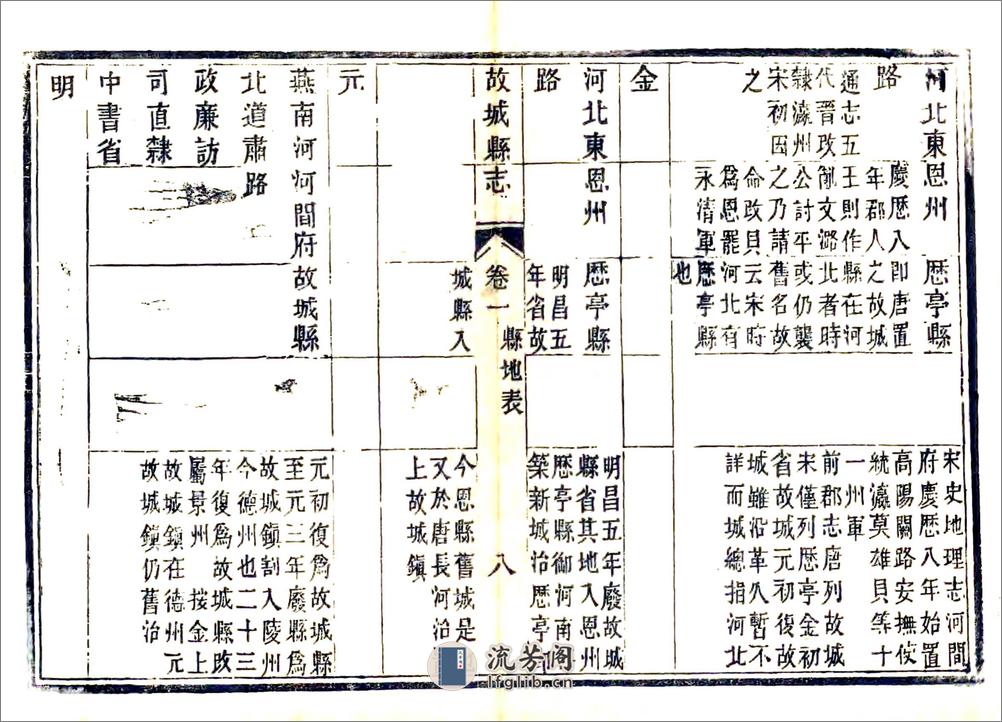 河北東
路
通志五
代晉改
隸瀛州
宋初因
之
恩州
慶歷八
年郡人
王則作
亂文潞
公討平
之乃請
命改貝
爲恩罷
永清軍
歷亭縣
即唐置
之故城
縣在河
北者時
或仍襲
舊名故
云宋時
河北有
歷亭縣
也
宋史地理志河間
府慶歷八年始置
高陽關路安撫使
統瀛莫雄貝等十
一州軍
前郡志唐列故城
宋僅列歷亭金初
省故城元初復故
城雖沿革久暫不
詳而城總指河北
金
河北東
路
恩州
歷亭縣
明昌五
年省故
城縣入
明昌五年廢故城
縣省其地入恩州
歷亭縣御河南
築新城治歷亭
今恩縣舊城是
又於唐長河治
上故城鎮
故城縣志
卷一
縣地表
八
元
燕南河
北道肅
政廉訪
司直隸
中書省
河間府
路
故城縣
元初復爲故城縣
至元三年廢縣爲
故城鎮割入陵州
今德州也二十三
年復爲故城縣改
屬景州 按金上
故城鎮在德州元
故城鎮仍舊治
明
流芳閣
lfglib.cn